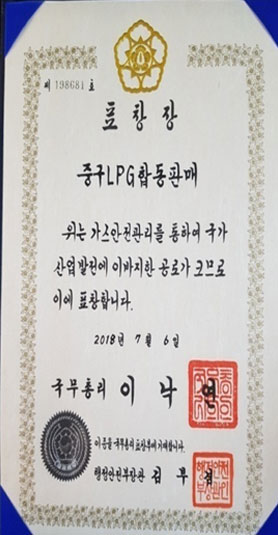 제 198681 호
표 창 장
중구LPG합동판매
위는 가스안전관리를 통하여 국가
산업발전에 이바지한 공로가 크므로
이에 표창합니다.
2018년 7월 6일
국무총리 이 낙 연
이 증을 국무총리 표창부에 기재합니다.
행정안전부장관 김 부 겸